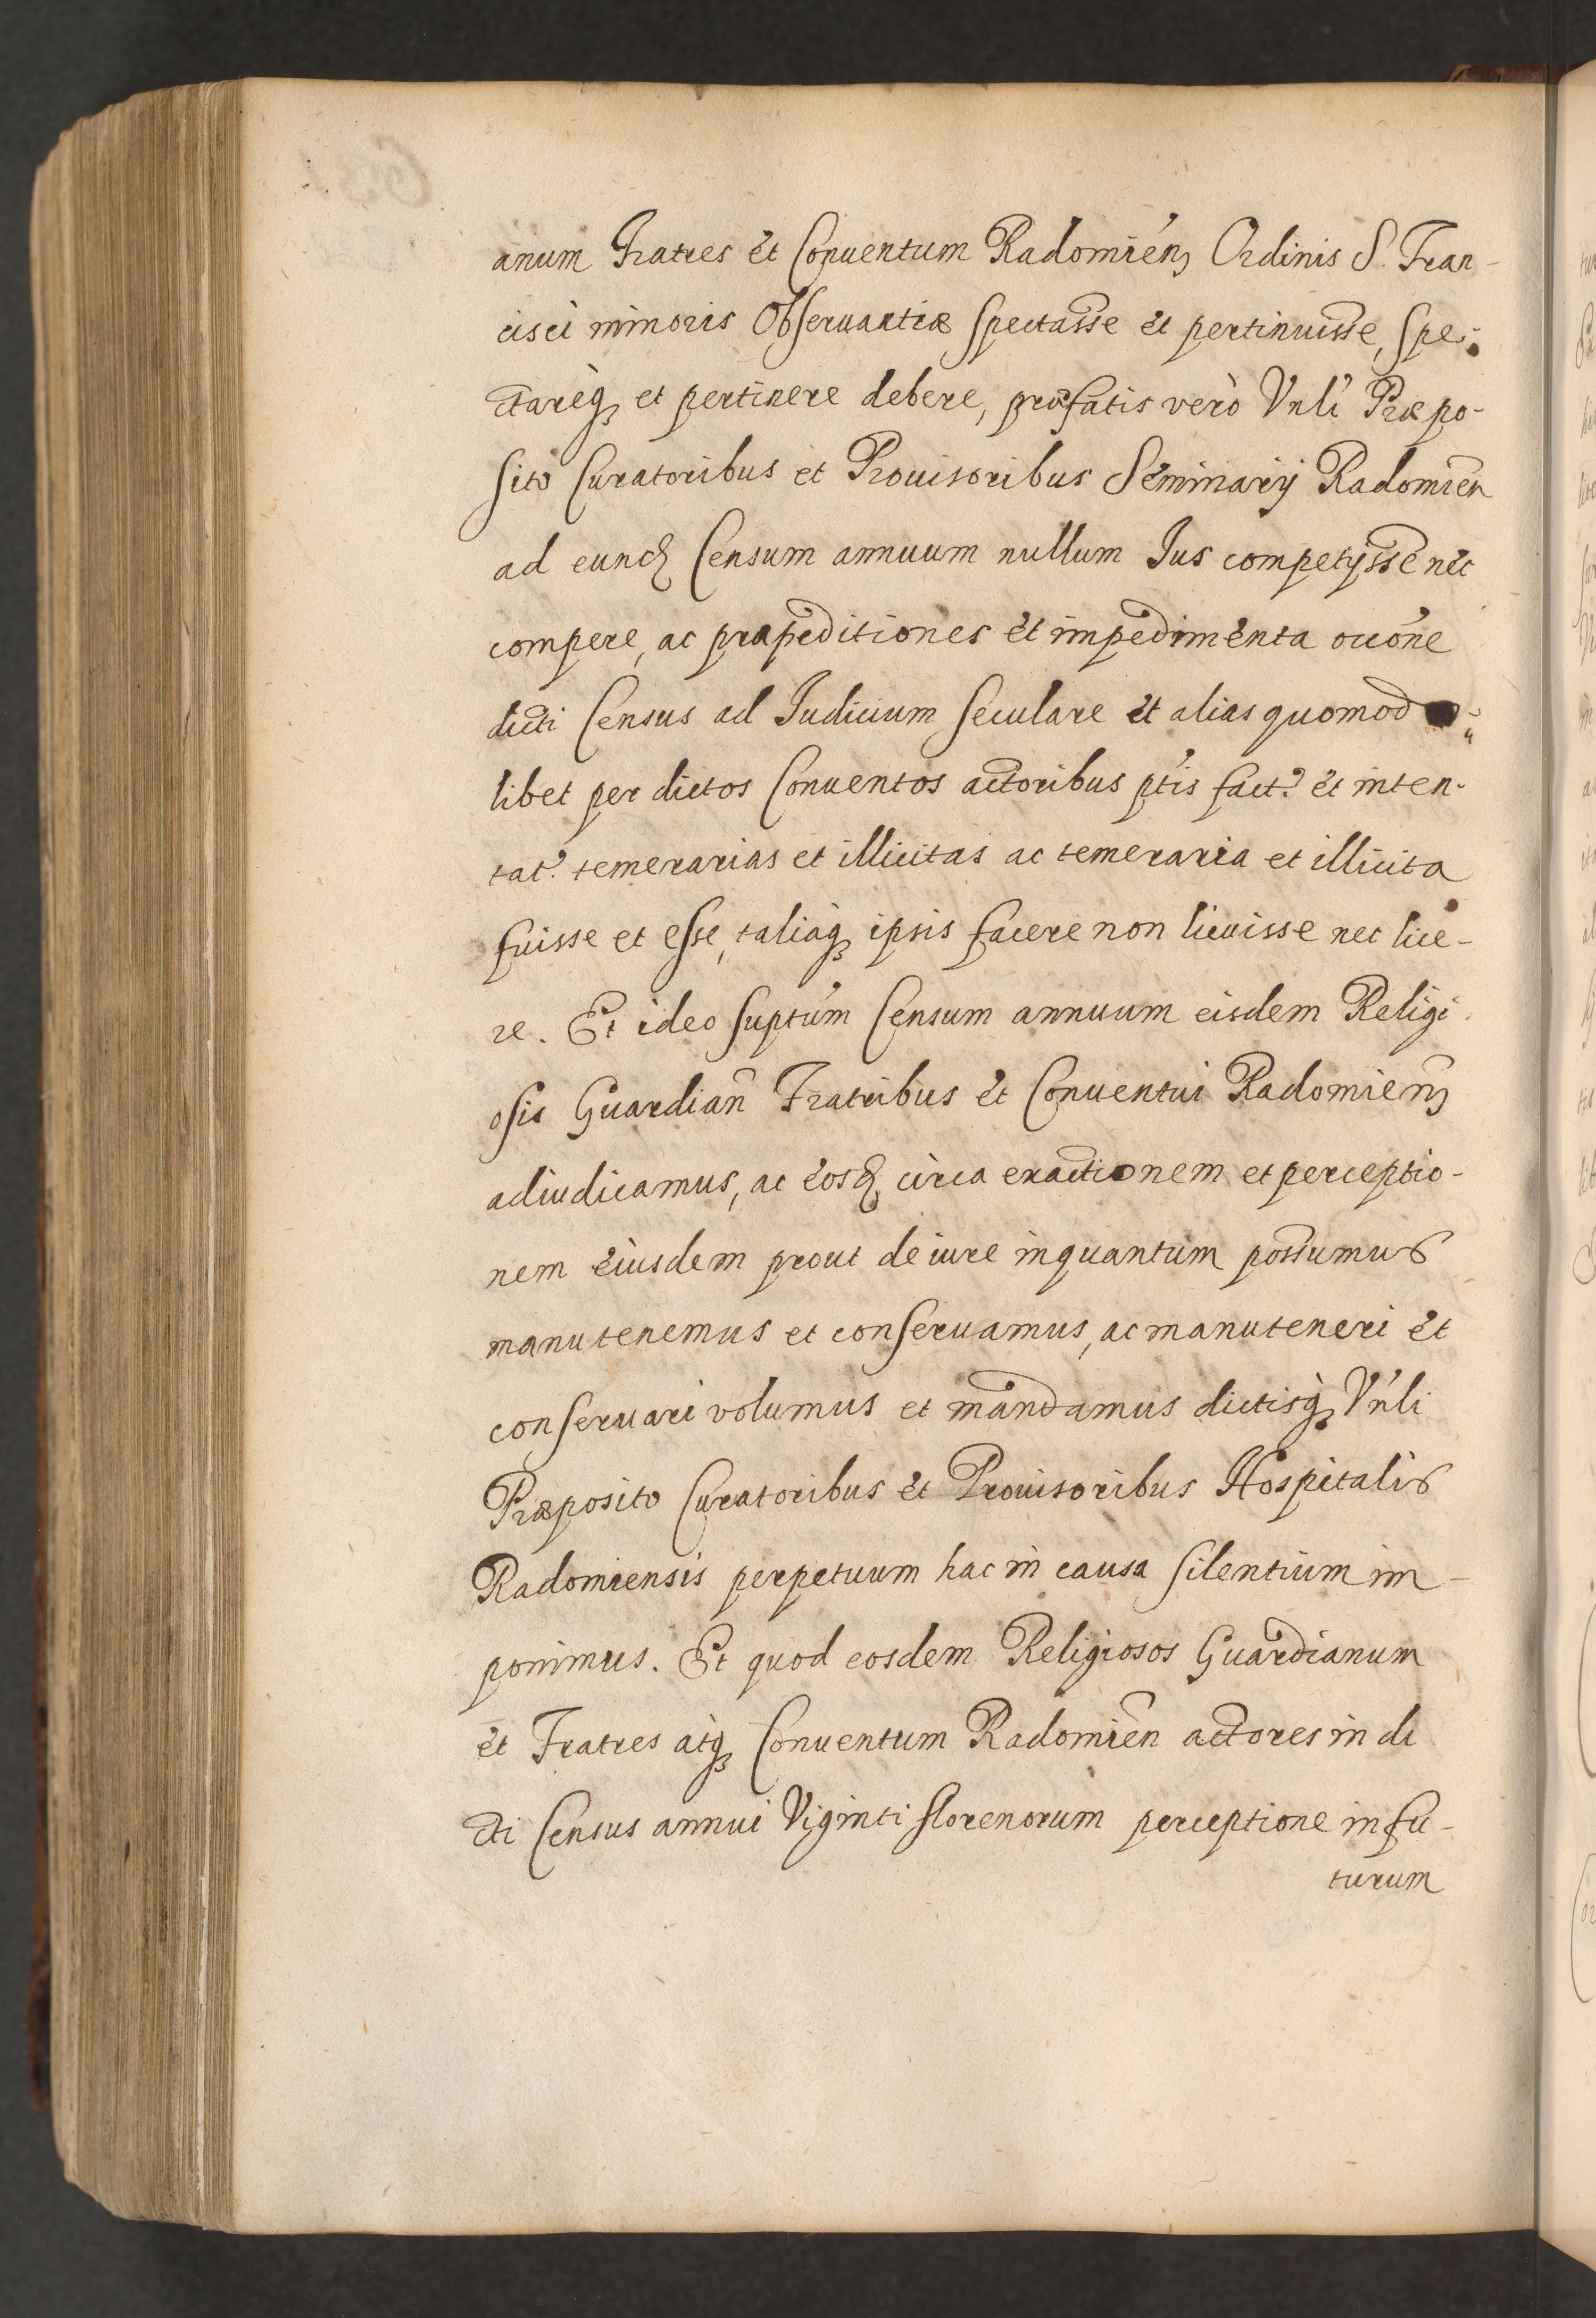 anum Fratres et Conuentum Radomien̄ Ordinis S. Fran-
cisci minoris Obseruantiæ spectasse et pertinuisse, spe-
ctareq̨ et pertinere debere, præfatis verò Vn̄li Præpo-
sito Curatoribus et Prouisoribus Seminarij Radomien̄
ad eund̨ Censum annuum nullum Ius competysse nec
compere, ac præpeditiones et impedimenta occōne
dicti Census ad Iudicium seculare et alias quomodo-
libet per dictos Conuentos actoribus ptīs fact. et inten-
tat. temerarias et illicitas ac temeraria et illicita
fuisse et esse, taliaq̨ ipsis facere non licuisse nec lice-
re. Et ideo suptūm Censum annuum eisdem Religi
osis Guardian̄ Fratribus et Conuentui Radomien̄
adiudicamus, ac eosd̨ circa exactionem et perceptio-
nem eiusdem prout de iure inquantum possumus
manutenemus et conseruamus, ac manuteneri et
conseruari volumus et mandamus dictisq̨ Vn̄li
Præposito Curatoribus et Prouisoribus Hospitalis
Radomiensis perpetuum hac in causa silentium im-
ponimus. Et quod eosdem Religiosos Guardianum
et Fratres atq̨ Conuentum Radomien̄ actores in di
cti Census annui Viginti florenorum perceptione in fu-
turum